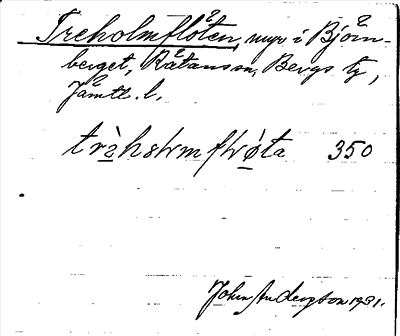 Treholmflöten, myr i Björn-
berget, Rätans sn, Bergs tg,
Jämtl. l.
350
John Andersson 1931.